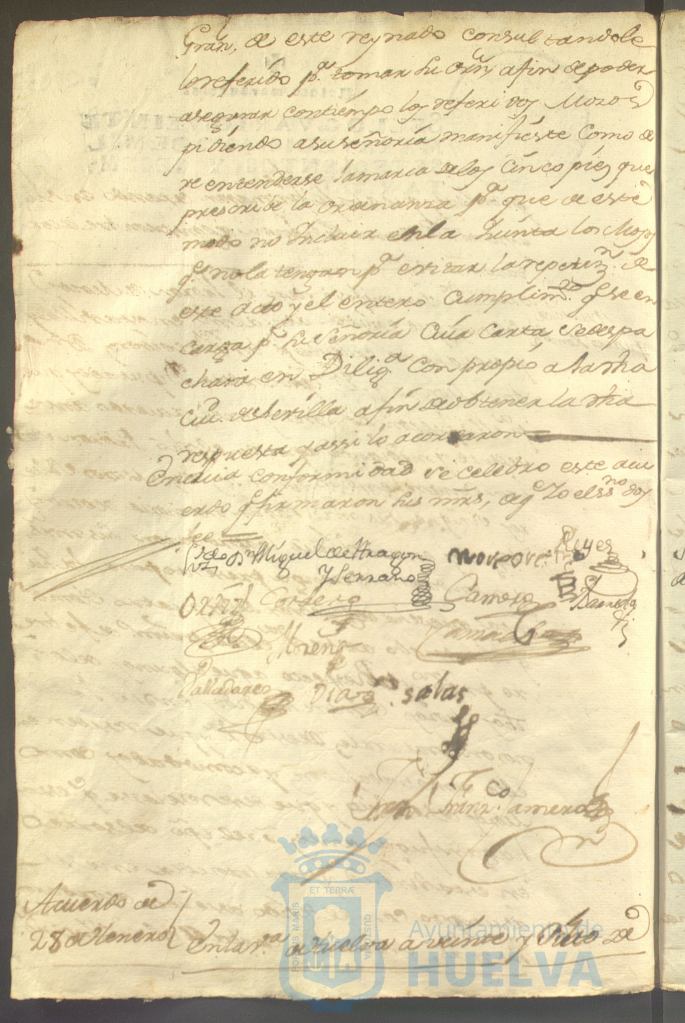 Gran. de este reynado consultandole
lo referido pa. tomar su orn. afin de poder
asegurar contiempo los referidos Mozos
pidiendo a su señoria manifieste como de
ve entenderse la marca de los cinco pies que
prescrive la ordenanza pa. que de este
modo no incluir en la Junta los Mozos
q. no la tengan pa. evitar la repeticn. de
este acto y el entero cumplimto. q. se en
carga pr. su señoria cuia carta se despa
chara en Diliga. con propio a la dha
ciu. de Sevilla a fin de obtener la dha
respuesta y assi lo acordaron
En cuia conformidad se celebro este acu
erdo q. firmaron sus mrs, de q. Yo el ssno. doy
fee
Dn. Miguel de Aragon
y Serrano
Reyes
Cordero
Camero
Moreno
Valladares Diaz. salas
Franco. Camero
Acuerdo de
28 de Henero
En la va. de Huelva a veinte y ocho de
ET TERRÆ
Ayuntamiento de
HUELVA